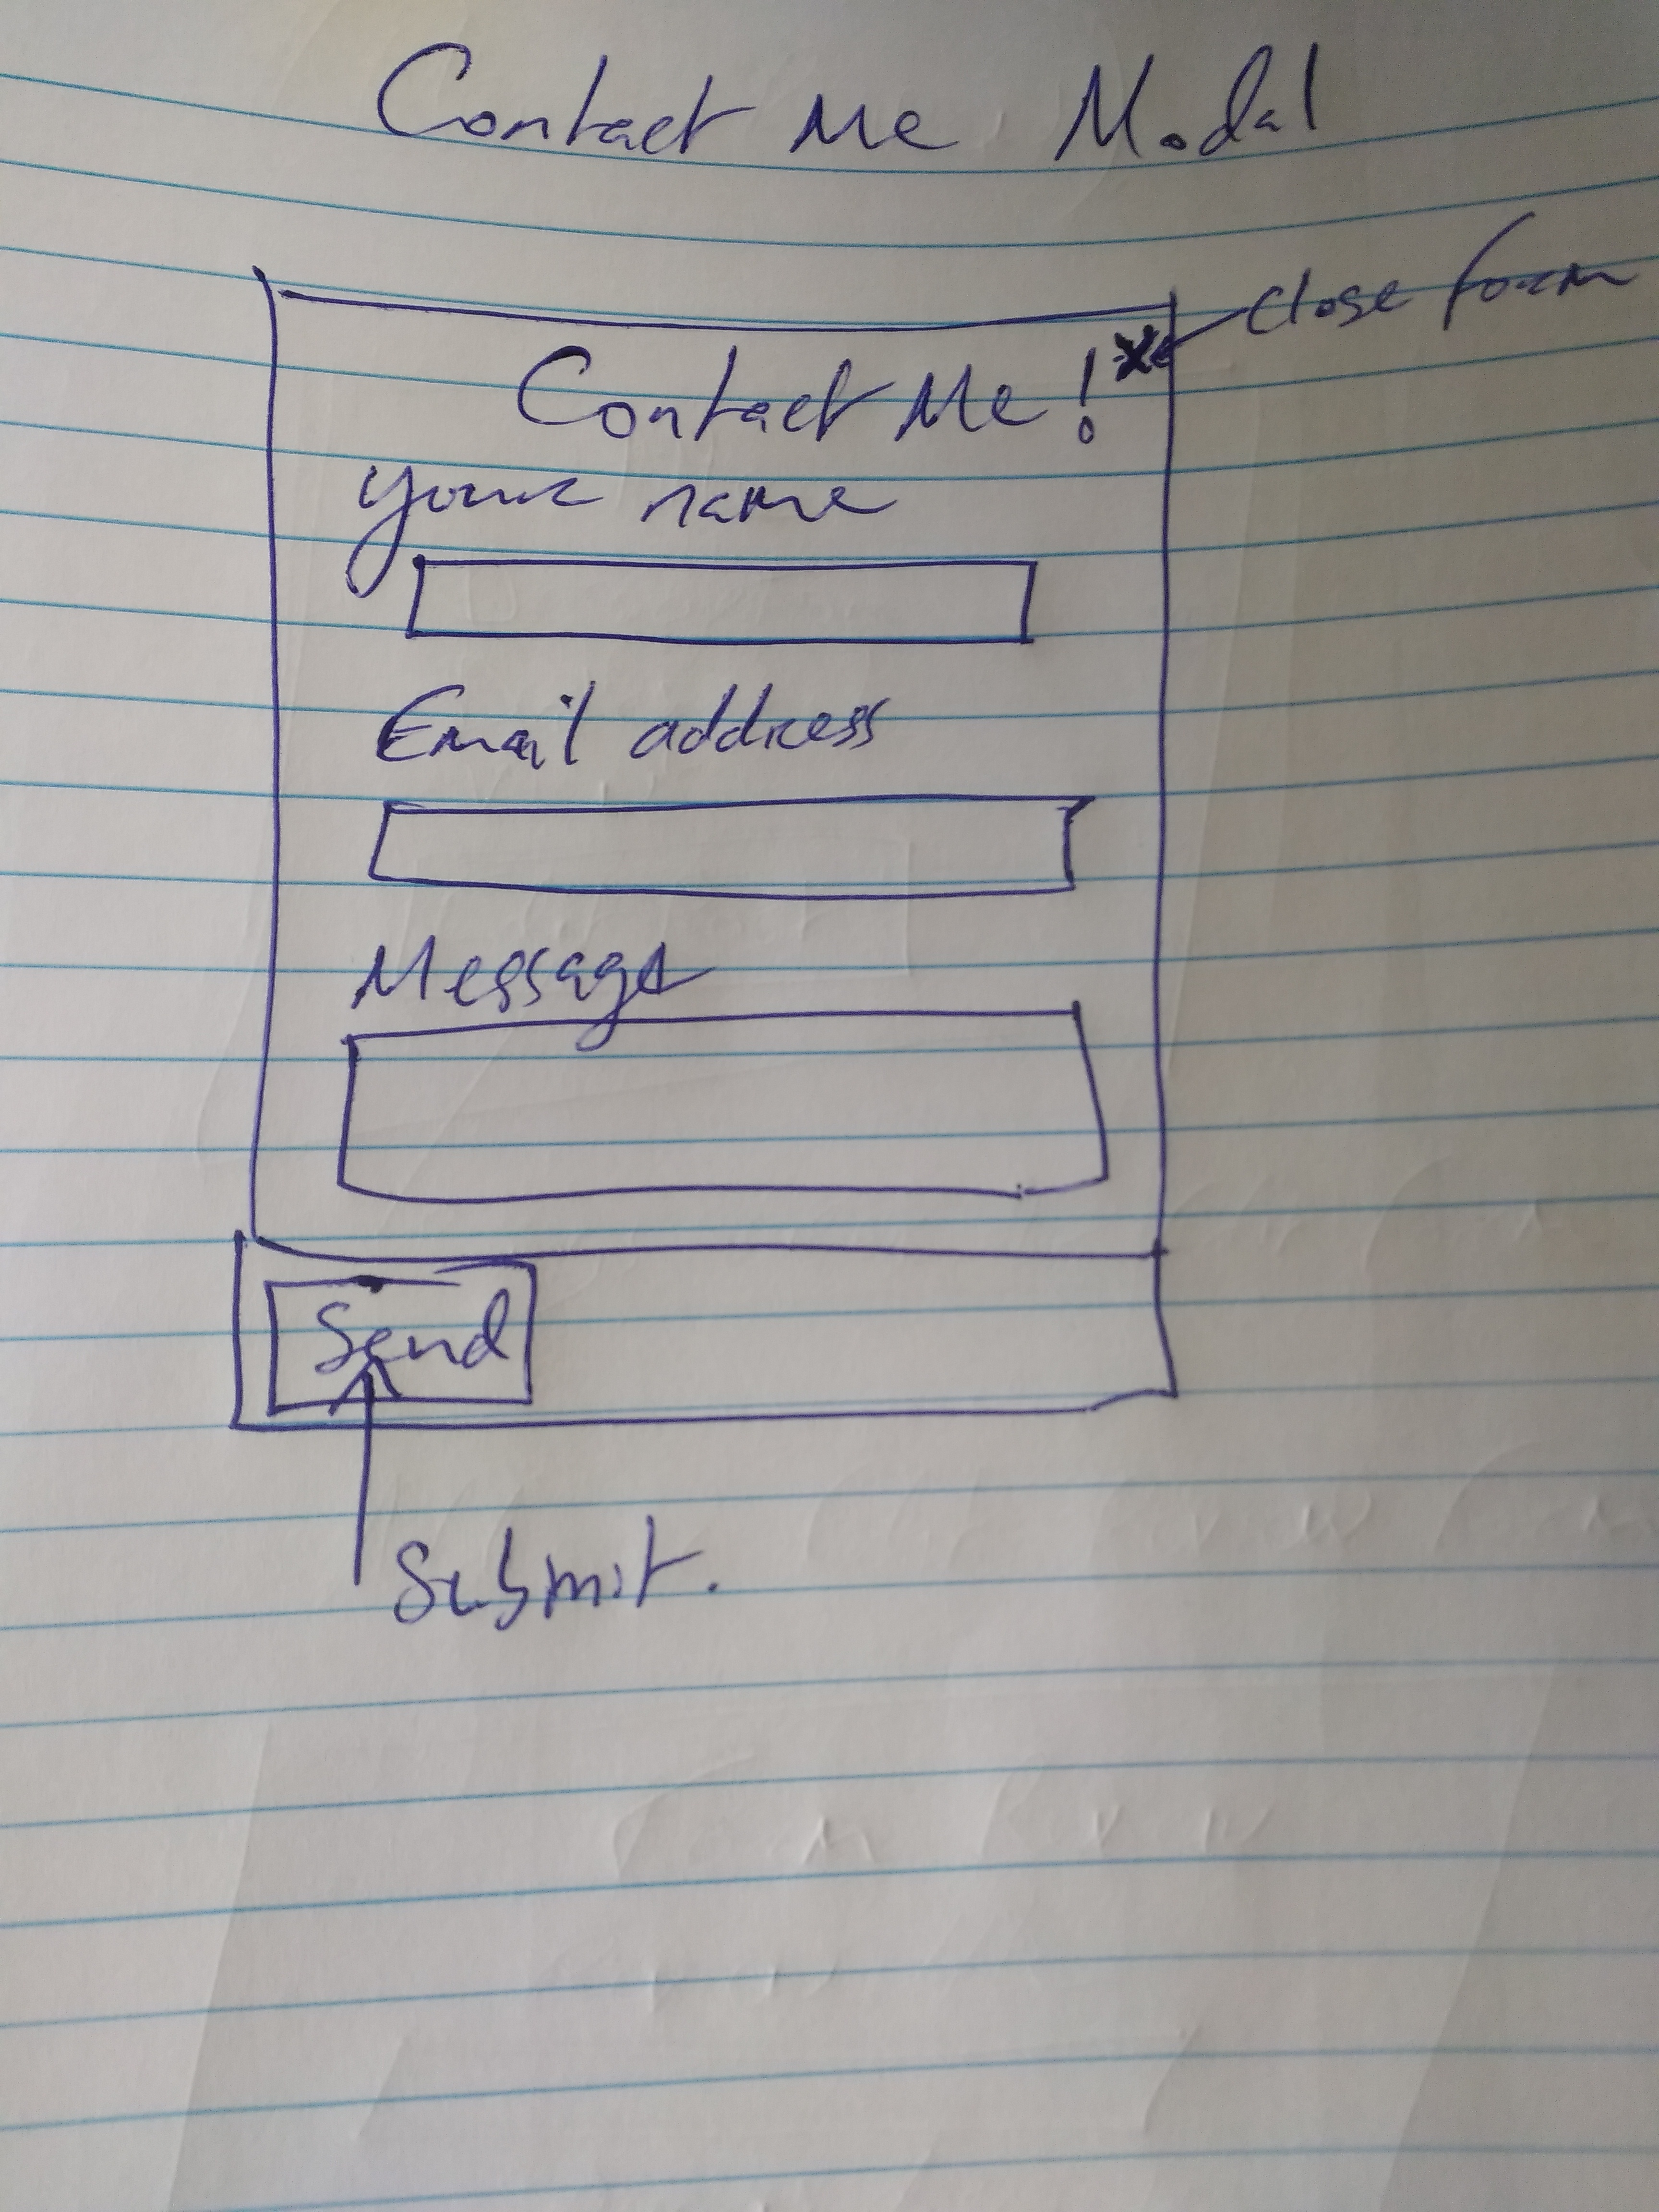 Contact Me Modal
close form
x
Contact Me!
your name
Email address
Message
Send
Submit.